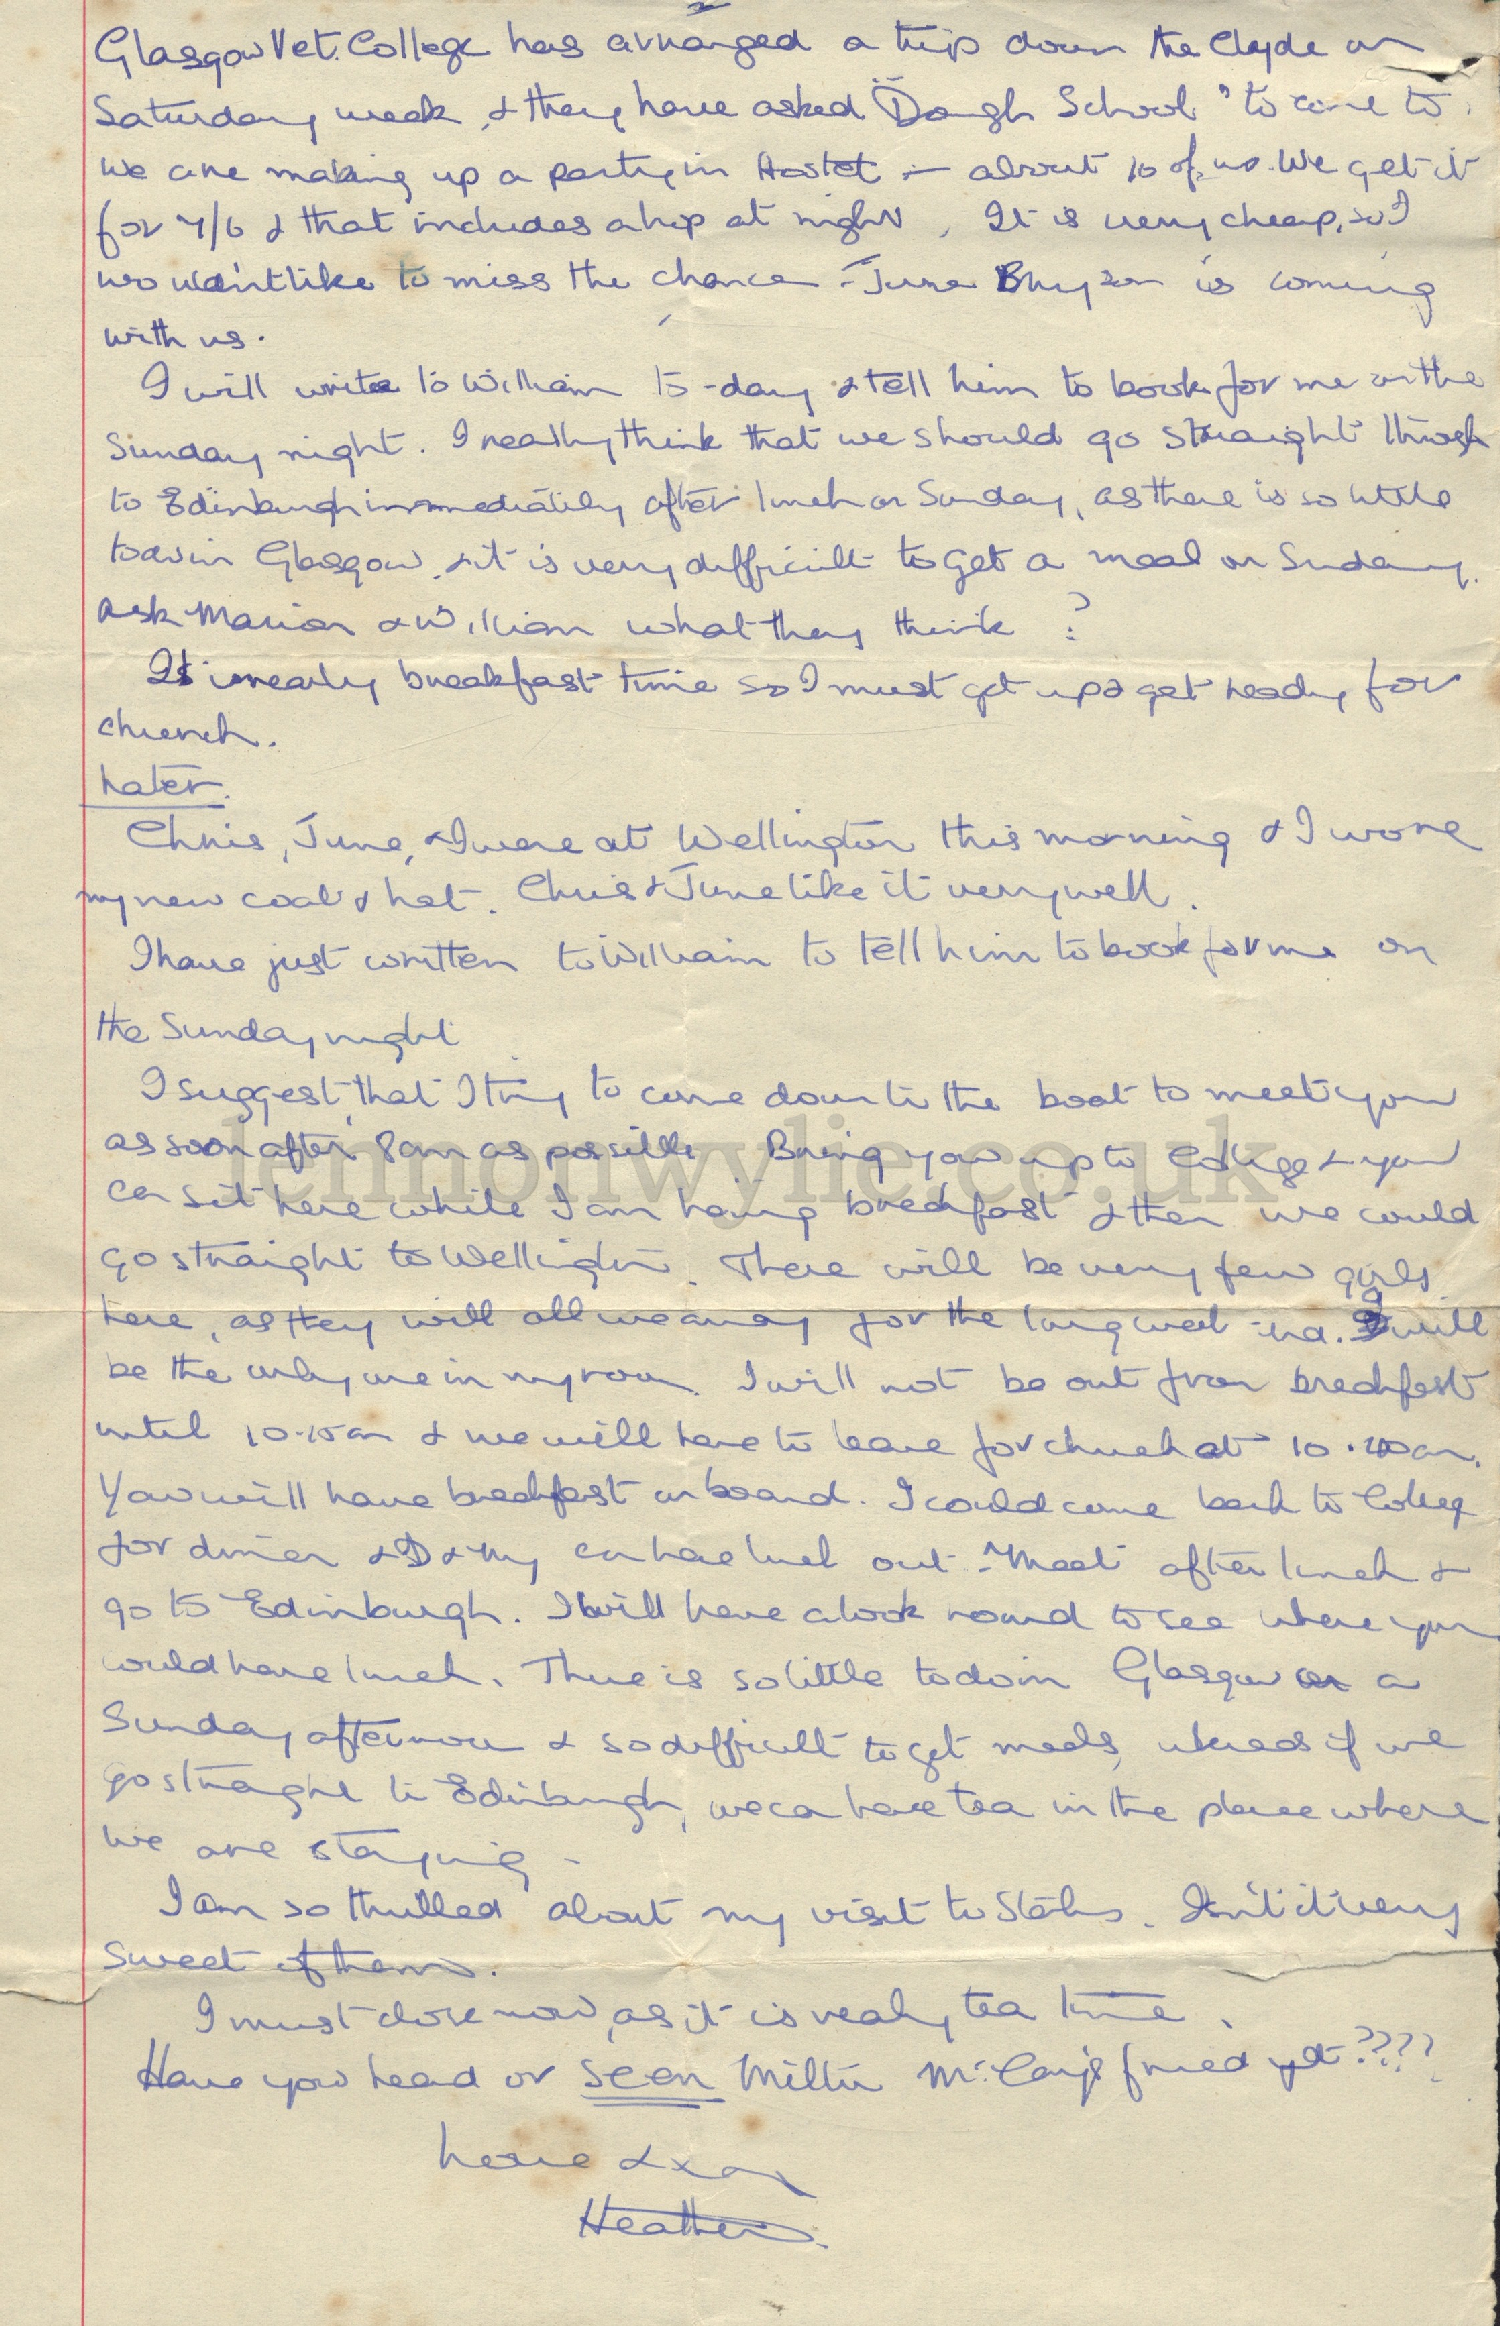 2
Glasgow Vet. College has arranged a trip down the Clyde on
Saturday week, & they have asked "Dough School" to come to.
We are making up a party in Hostel - about 10 of us. We get it
for 7/6 & that includes a hop at night. It is very cheap, so I
wouldn't like to miss the chance - June is coming
with us.
I will write to William to-day & tell him to book for me on the
Sunday night. I really think that we should go straight through
to Edinburgh immediately after lunch on Sunday, as there is so little
to do in Glasgow, & it is very difficult to get a meal on Sunday.
Ask Marion & William what they think ?
It is nearly breakfast time so I must get up & get ready for
church.
Later.
Chris, June, & I were at Wellington this morning & I wore
my new coat & hat. Chris & June like it very well.
I have just written to William to tell him to book for me on
the Sunday night
I suggest that I try to come down to the boat to meet you
as soon after 8am as possible Bring you up to College & you
can sit here while I am having breakfast & then we could
go straight to Wellington. There will be very few girls
here, as they will all be away for the long week-end. I will
be the only one in my room. I will not be out from breakfast
until 10.15am & we will have to leave for church at 10.40am.
You will have breakfast on board. I could come back to College
for dinner & D & My can have lunch out - Meet after lunch &
go to Edinburgh. I will have a look round to see where you
could have lunch. There is so little to do in Glasgow on a
Sunday afternoon & so difficult to get meals, whereas if we
go straight to Edinburgh, we can have tea in the place where
we are staying -
I am so thrilled about my visit to . Isn't it very
sweet of them.
I must close now, as it is nearly tea time.
Have you heard or seen Miltie McCay's friend yet ????
Love & xxx
Heather.
lennonwylie.co.uk